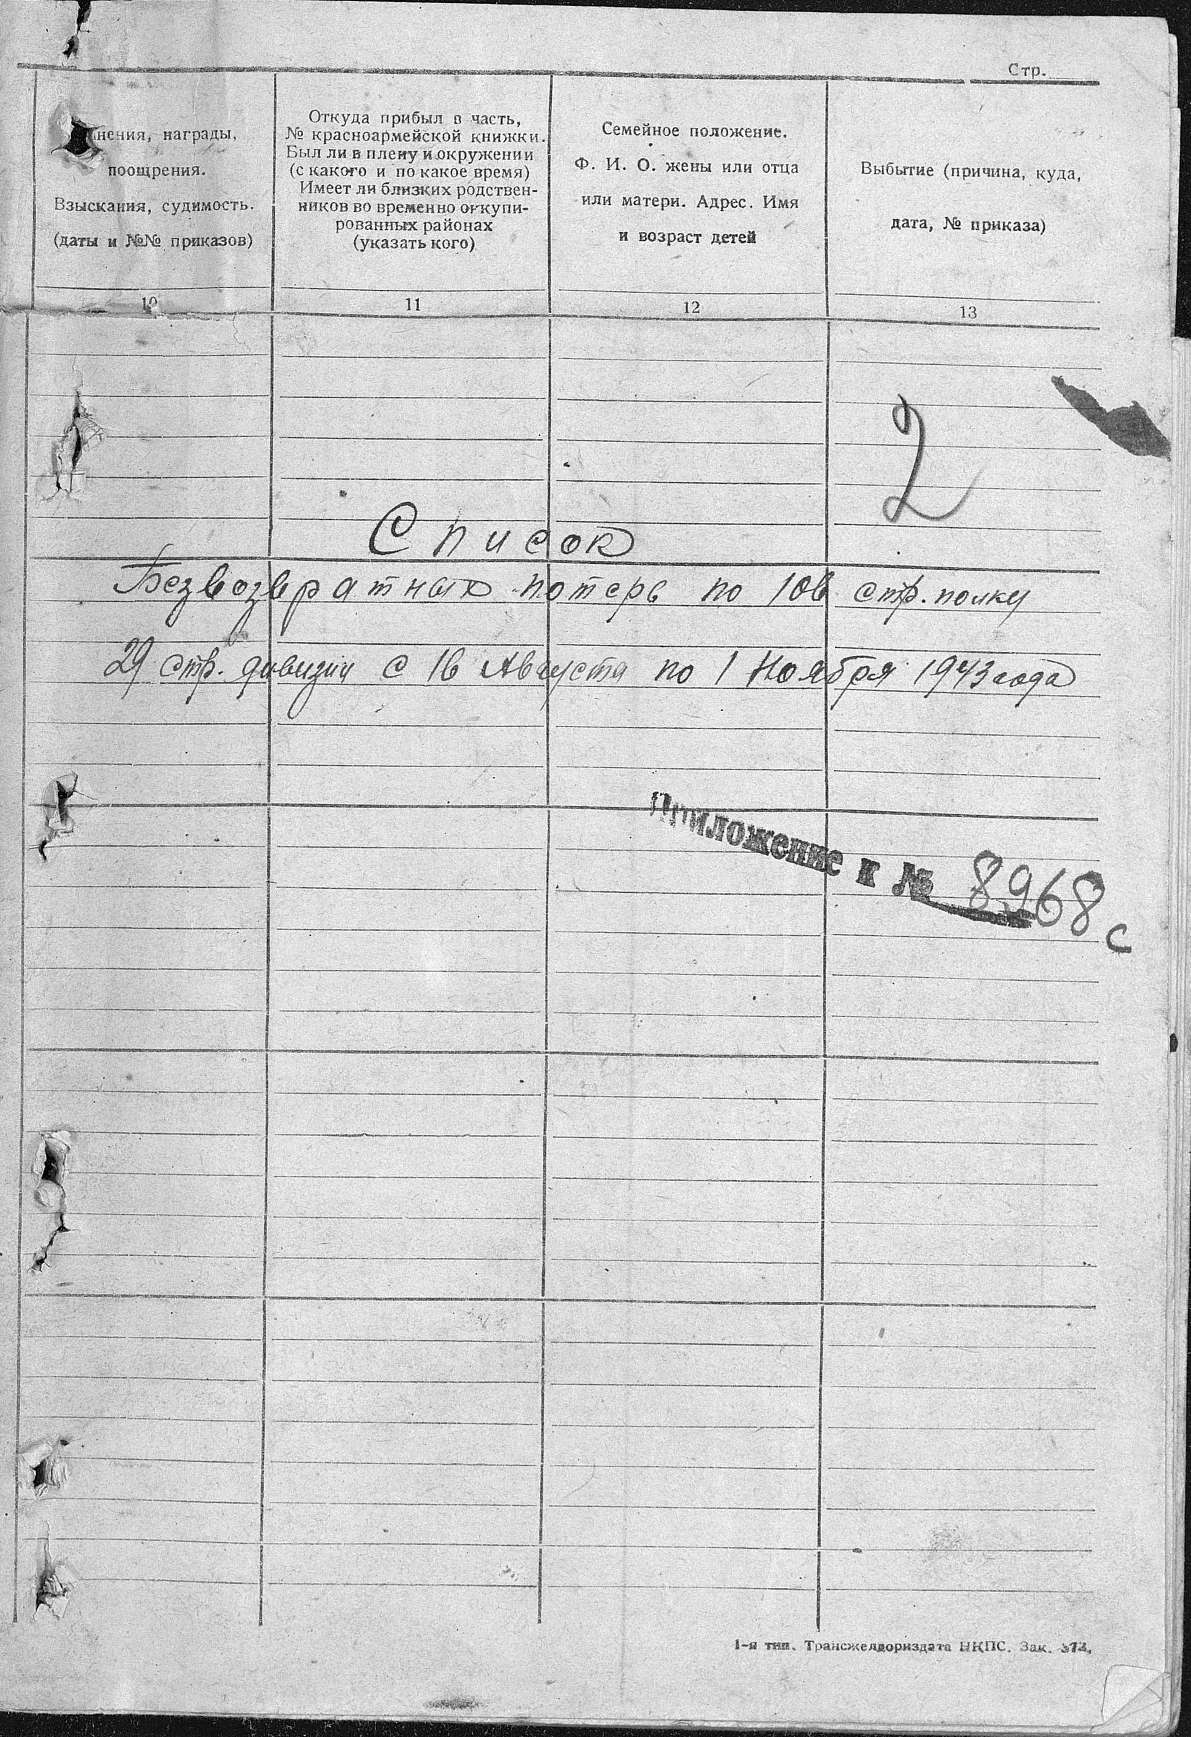 Стр.
нения, награды,
поощрения.
Взыскания, судимость.
(даты и №№ приказов)
10
Откуда прибыл в часть,
№ красноармейской книжки.
Был ли в плену и окружении
(с какого и по какое время)
Имеет ли близких родствен-
ников во временно оккупи-
рованных районах
(указать кого)
11
Семейное положение.
Ф. И. О. жены или отца
или матери. Адрес. Имя
и возраст детей
12
Выбытие (причина, куда,
дата, № приказа)
13
2
Список
Безвозвратных потерь по 106 стр. полку
29 стр. дивизии с 16 Августа по 1 Ноября 1943 года
Приложение к № 8968с
1-я тип. Трансжелдориздата НКПС. Зак.